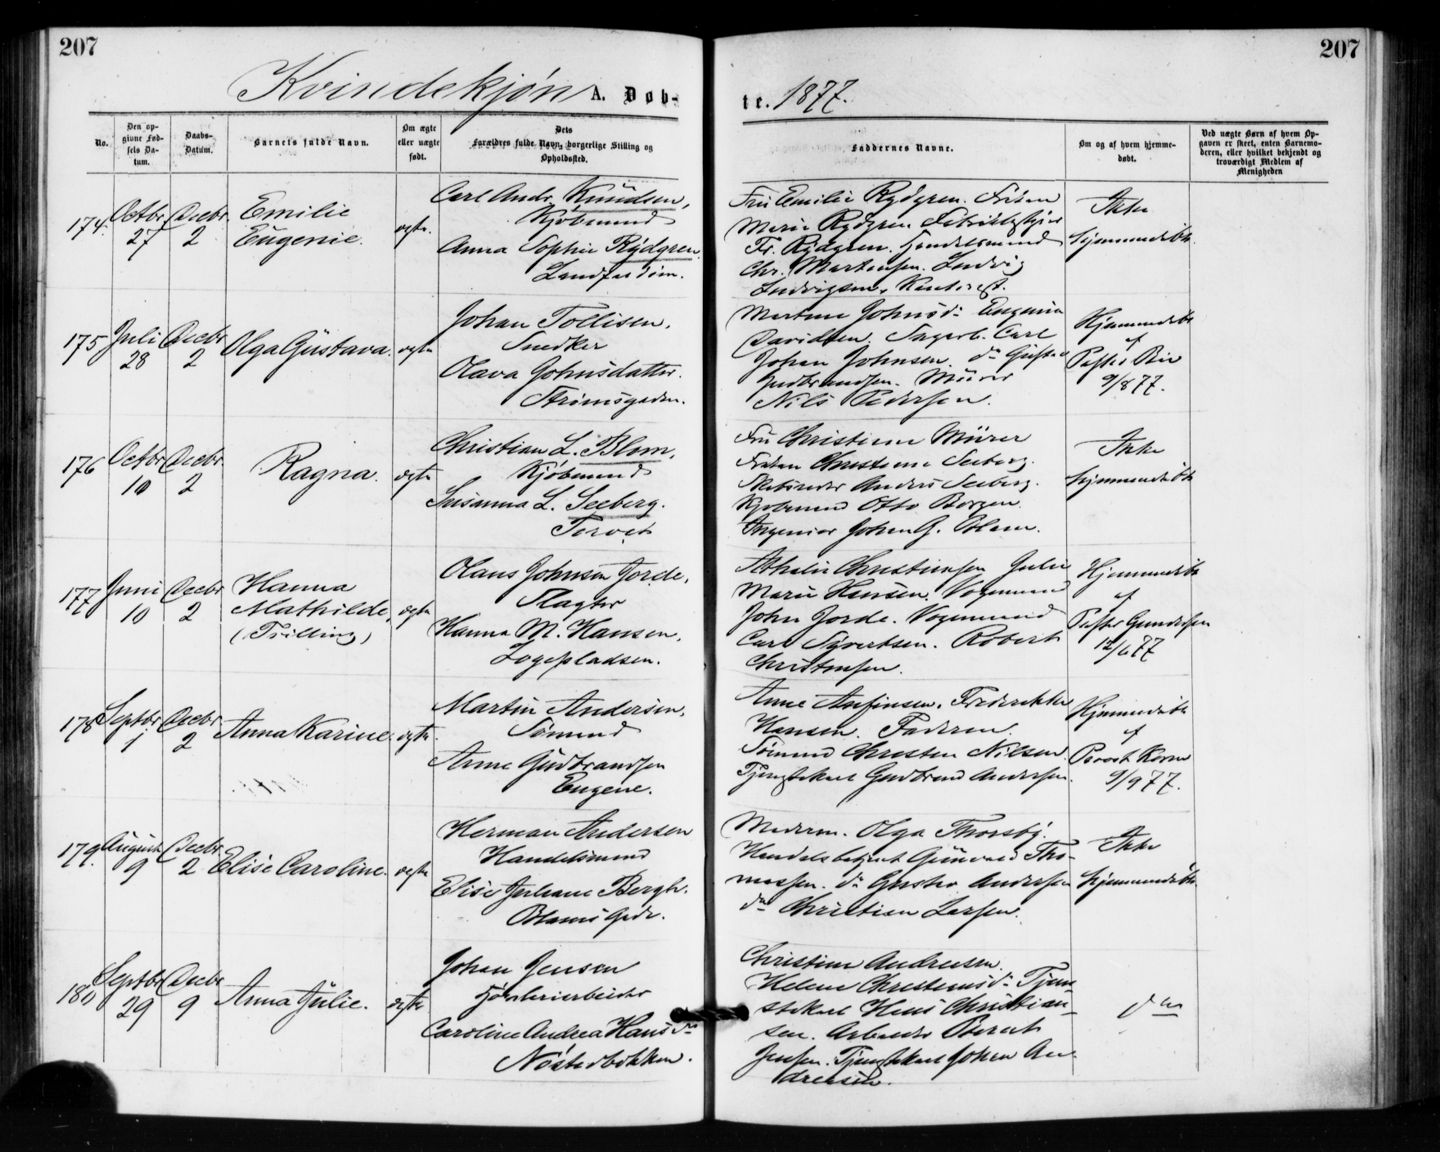 207
207
Kvindekjøn A. Døb-
te. 1877.
No.
Den op-
givne Fød-
sels Da-
tum.
Daabs-
Datum.
Barnets fulde Navn.
Om ægte
eller uægte
født.
Dets
Forældres fulde Navn, borgerlige Stilling og
Opholdssted.
Faddernes Navne.
Om og af hvem hjemme-
døbt.
Ved uægte Børn af hvem Op-
gaven er skeet, enten Barnemo-
deren, eller hvilket bekjendt og
troværdigt Medlem af
Menigheden
174.
Octbr
27
Decbr
2
Emilie
Eugenie.
ægte.
Carl Andr. Knudsen,
Kjøbmand
Anna Sophie Rydgren
Fru Emilie Rydgren. Frøken
Marie Rydgren.
Fr. Rydgren. Handelsmand
Chr. Martinsen. Ludvig
Ludvigsen,
Ikke
hjemmedøbt.
175
Juli
28
Decbr
2
Olga Gustava.
ægte
Johan Tollisen.
Snedker
Olava Johnsdatter.
Strømsgaden.
Martine Johnsd. Eugenia
Davidsen. Carl
Johan Johnsen. do Gustav
Gudbrandsen. Murer
Nils Pedersen.
Hjemmedøbt
af
9/8 77.
176
Octbr
10
Decbr
2
Ragna.
ægte
Christian L. Blom,
Kjøbmand
Susanna L. Seeberg.
Torvet
Fru Christiane Mürer
Frøken Christiane Seeberg.
Skibsreder Anders Seeberg.
Kjøbmand Otto Borgen.
Ingeniør Johan G. Blom.
Ikke
hjemmedøbt
177
Juni
10
Decbr
2
Hanna
Mathilde,
(Trilling)
ægte
Olaus Johnsen Jorde,
Slagter
Hanna M. Hansen,
Løgepladsen.
Athalie Christiansen Julie
Marie Hansen. Vognmand
John Jorde. Vognmand
Carl Syvertsen. Robert
Christensen.
Hjemmedøbt
af
Pastor Gundersen
12/6 77
178
Septbr
1
Decbr
2
Anna Karine.
ægte.
Martin Andersen,
Sømand
Anne Gudbrandsen
Eugene.
Anne Anfinsen. Frederikke
Hansen. Faderen.
Sømand Christen Nilsen
Tjenestekarl Gudbrand Andersen.
Hjemmedøbt
af
Provst
9/9 77.
179.
August
9
Decbr.
2
Elise Caroline.
ægte
Herman Andersen
Handelsmand
Elise Juliane Bergh.
Moderen. Olga Thorsby.
Handelsbetjent Gunvald Tho-
massen. do Gustav Andersen
do Christian Larsen.
Ikke
hjemmedøbt.
180
Septbr
29
Decbr
9
Anna Julie.
ægte
Johan Jensen
Garveriarbeider
Caroline Andrea Hansdr
Nøstedbakken.
Christine Andresen.
Helene Christensd. Tjene-
stekarl Hans Christian-
sen. Arbeider Berent
Jensen. Tjenestekarl Johan An-
dresen.
do